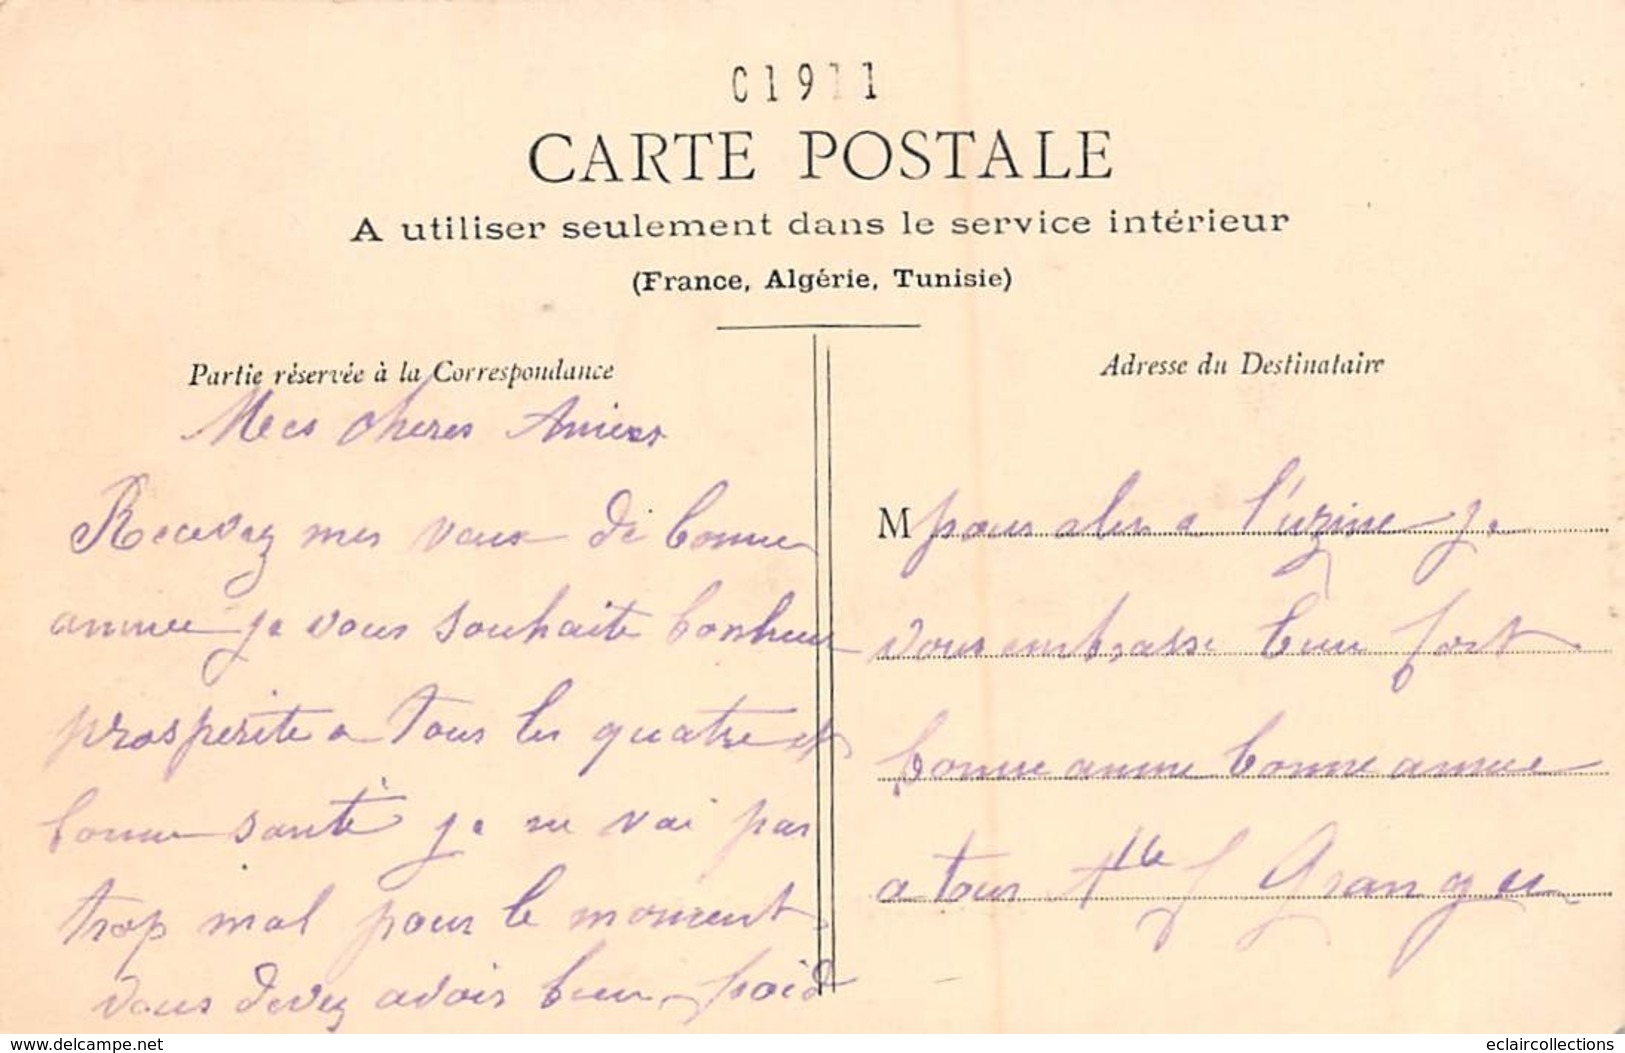 C1911
CARTE POSTALE
A utiliser seulement dans le service intérieur
(France, Algérie, Tunisie)
Partie réservée à la Correspondance
Mees cheres Amies
Recevez mes veux de bonne
annee je vous souhaite bonheur
prosperite a tous les quatre et
bonne santé je ne vai pas
trop mal pour le moment
vous devez avoir bien froid
Adresse du Destinataire
M pour aler a l'uzine je
vous embrasse bien fort
bonne annee bonne annee
a tous J Granger
www.delcampe.net
eclaircollections